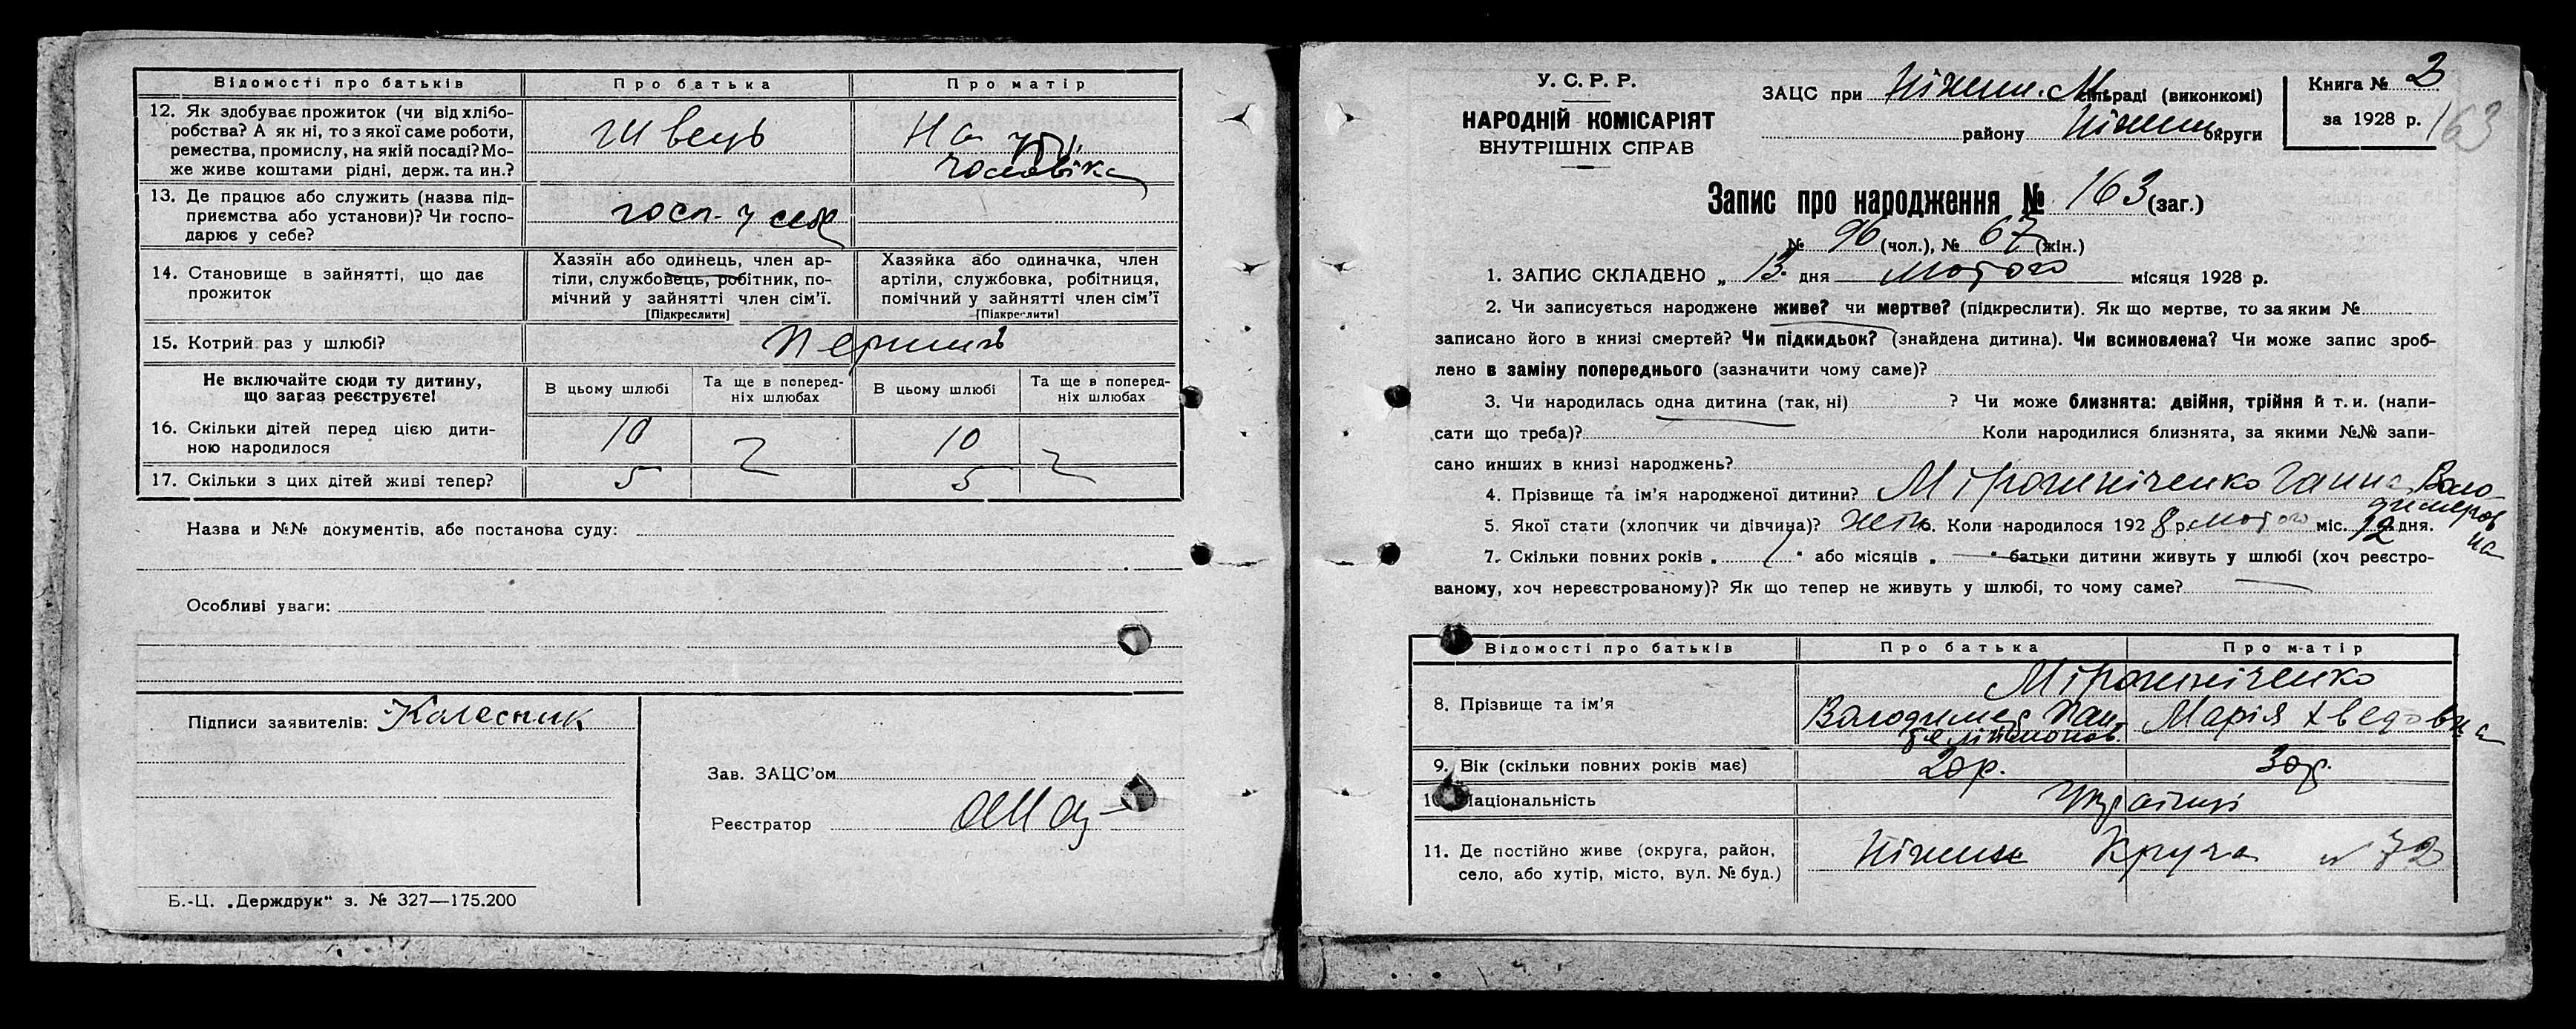 Відомості про батьків
Про батька
Про матір
12. Як здобуває прожиток (чи від хлібо-
робства? А як ні, то з якої саме роботи,
ремества, промислу, на якій посаді? Мо-
же живе коштами рідні, держ. та ин.?
Швець
На
чоловіка
13. Де працює або служить (назва під-
приємства або установи)? Чи госпо-
дарює у себе?
госп. у себе
14. Становище в зайнятті, що дає
прожиток
Хазяїн або одинець, член ар-
тілі, службовець, робітник, по-
мічний у зайнятті член сім'ї.
[Підкреслити]
Хазяйка або одиначка, член
артілі, службовка, робітниця,
помічний у зайнятті член сім'ї
[Підкреслити]
15. Котрий раз у шлюбі?
Перший
Не включайте сюди ту дитину,
що зараз реєструєте!
В цьому шлюбі
Та ще в поперед-
ніх шлюбах
В цьому шлюбі
Та ще в поперед-
ніх шлюбах
16. Скільки дітей перед цією дити-
ною народилося
10
10
17. Скільки з цих дітей живі тепер?
5
5
Назва и №№ документів, або постанова суду:
Особливі уваги:
Підписи заявителів: Колесник
Зав. ЗАЦС'ом
Реєстратор
Б.-Ц. „Держдрук“ з. № 327—175.200
У. С. Р. Р.
НАРОДНІЙ КОМІСАРІЯТ
ВНУТРІШНІХ СПРАВ
ЗАЦС при Ніжин. М. сільраді (виконкомі)
району Ніжин. округи
Книга № 2
за 1928 р.
163
Запис про народження № 163 (заг.)
№ 96 (чол.), № 67 (жін.)
1. ЗАПИС СКЛАДЕНО „ 13 дня лютого місяця 1928 р.
2. Чи записується народжене живе? чи мертве? (підкреслити). Як що мертве, то за яким №
записано його в книзі смертей? Чи підкидьок? (знайдена дитина). Чи всиновлена? Чи може запис зроб-
лено в заміну попереднього (зазначити чому саме)?
3. Чи народилась одна дитина (так, ні) ? Чи може близнята: двійня, трійня й т. и. (напи-
сати що треба)? Коли народилися близнята, за якими №№ запи-
сано инших в книзі народжень?
4. Прізвище та ім'я народженої дитини? Мірошніченко Ганна Воло-
димиров
на
5. Якої стати (хлопчик чи дівчина)? жін. Коли народилося 1928 р. лютого міс. 12 дня.
7. Скільки повних років „ “ або місяців „ — “ батьки дитини живуть у шлюбі (хоч реєстро-
ваному, хоч нереєстрованому)? Як що тепер не живуть у шлюбі, то чому саме? —
Відомості про батьків
Про батька
Про матір
8. Прізвище та ім'я
Мірошніченко
Володимер Пан-
телiймонов.
Марія Хведовна
9. Вік (скільки повних років має)
30р.
10. Національність
Українці
11. Де постійно живе (округа, район,
село, або хутір, місто, вул. № буд.)
Ніжин Круча № 72